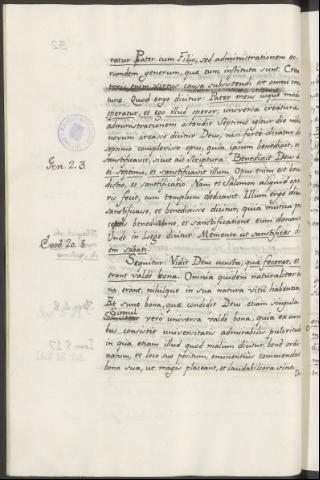 ratur Pater cum Filio, sed administrationem eo-
rundem generum, quæ tum instituta sunt. Crea-
toris enim virtus causa subsistendi est omni crea-
turæ. Quod ergo dicitur: Pater meus usque modo
operatur, et ego illud operor; universæ creaturæ
administrationem ostendit. Septimo igitur die nihil
novum creasse dicitur Deus, nisi forte dicatur die
septimo complevisse opus, quia ipsum benedixit, et
santificavit, sicut ait Scriptura: Benedixit Deus di-
Gen. 2. 3.
ei septimo, et sanctificavit illum. Opus enim est bene-
dictio, et santificatio. Nam et Salomon aliquid ope-
ris fecit, cum templum dedicavit. Illum ergo diem
sanctificasse, et benedixisse dicitur, quia mystica præ
ceteris benedictione, et sanctificatione eum donavit.
Unde in Lege dicitur: Memento ut santifices di-
Exod. 20. 8.
em sabati.
Sequitur: Vidit Deus cuncta, quæ fecerat, et
erant valde bona. Omnia quidem naturaliter bo-
na erant, nihilque in sua natura vitii habentia.
Et sunt bona, quæ condidit Deus etiam singula.
Simul
vero universa valde bona, quia ex omni-
bus consistit universitatis admirabilis pulcritudo
in qua etiam illud quod malum dicitur, bene ordi-
natum, et loco suo positum, eminentius commendat
bona sua, ut magis placeant, et laudabiliora sint.